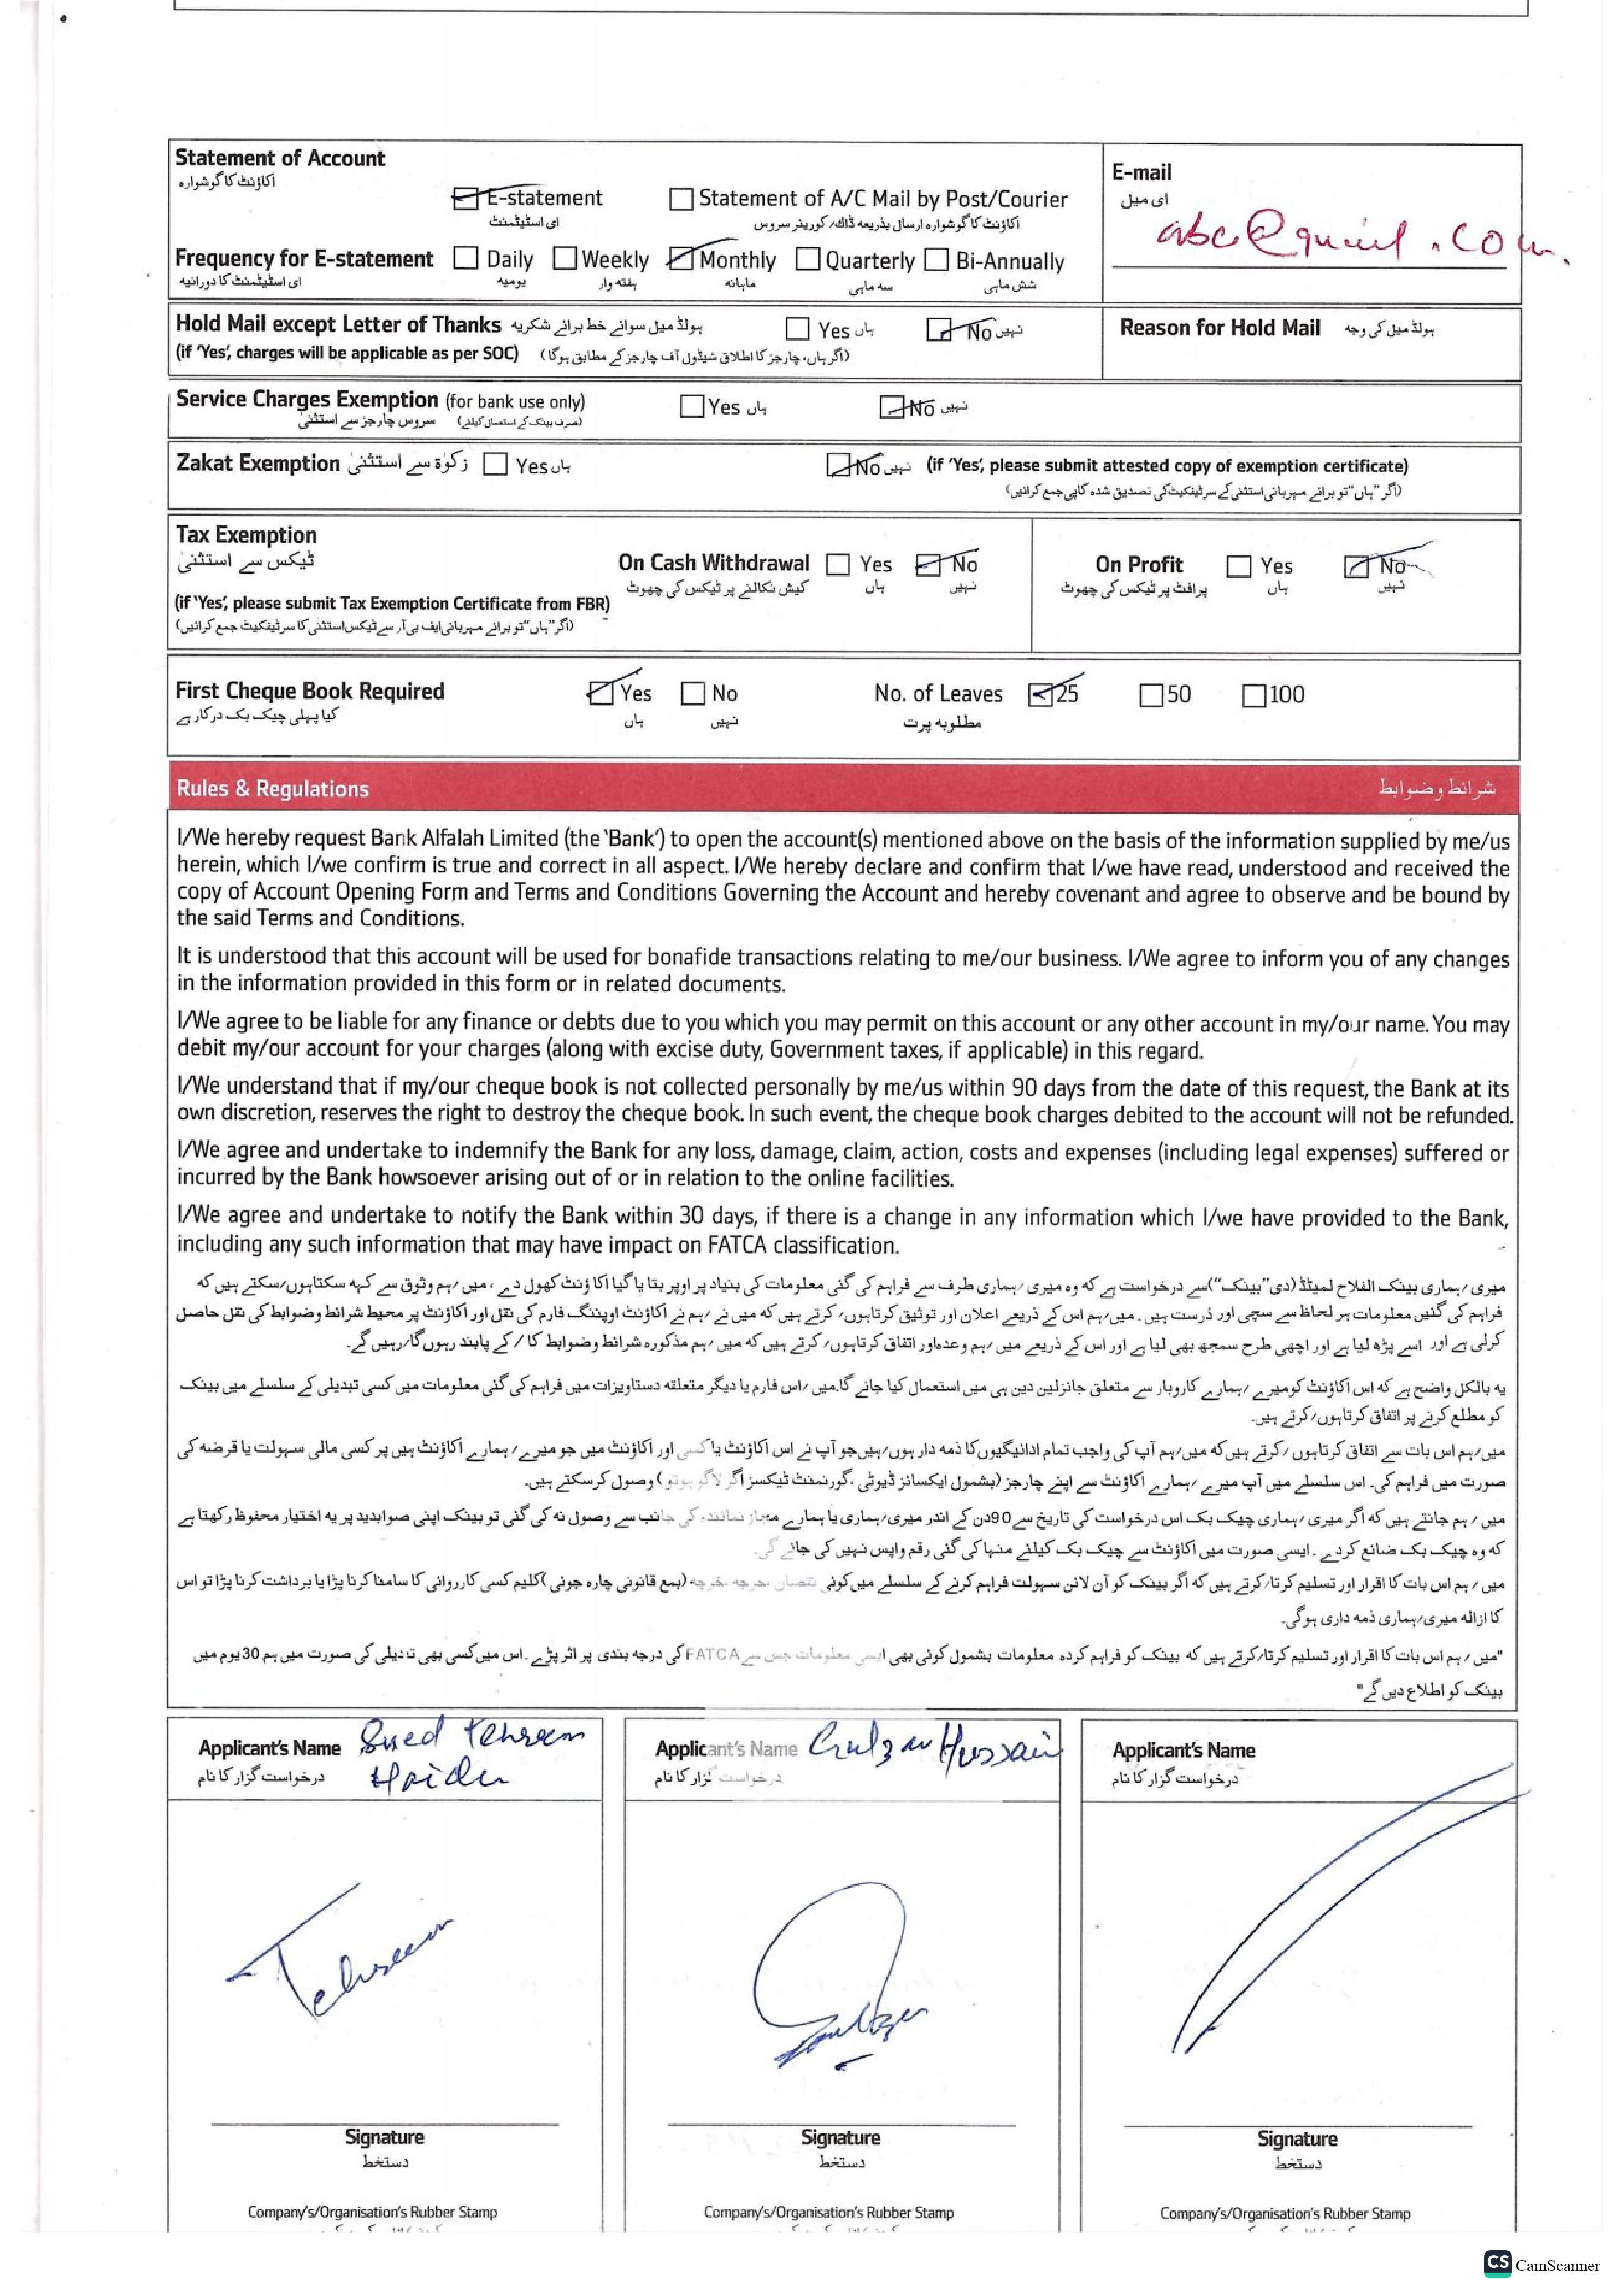 Statement of Account
اکاؤنٹ کا گوشوارہ
E-statement Statement of A/C Mail by Post/Courier
ای اسٹیٹمنٹ اکاؤنٹ کا گوشوارہ ارسال بذریعہ ڈاک/کوریئر سروس
Frequency for E-statement Daily Weekly Monthly Quarterly Bi-Annually
ای اسٹیٹمنٹ کا دورانیہ یومیہ ہفتہ وار ماہانہ سہ ماہی شش ماہی
E-mail
ای میل
.com.
Hold Mail except Letter of Thanks ہولڈ میل سوائے خط برائے شکریہ Yes ہاں No نہیں
(if 'Yes', charges will be applicable as per SOC) (اگر ہاں، چارجز کا اطلاق شیڈول آف چارجز کے مطابق ہوگا)
Reason for Hold Mail ہولڈ میل کی وجہ
Service Charges Exemption (for bank use only) Yes ہاں No نہیں
سروس چارجز سے استثنیٰ (صرف بینک کے استعمال کیلئے)
Zakat Exemption زکوٰۃ سے استثنیٰ Yes ہاں No نہیں (if 'Yes', please submit attested copy of exemption certificate)
(اگر "ہاں" تو برائے مہربانی استثنیٰ کے سرٹیفکیٹ کی تصدیق شدہ کاپی جمع کرائیں)
Tax Exemption
ٹیکس سے استثنیٰ
On Cash Withdrawal Yes No On Profit Yes No
کیش نکالنے پر ٹیکس کی چھوٹ ہاں نہیں پرافٹ پر ٹیکس کی چھوٹ ہاں نہیں
(if 'Yes', please submit Tax Exemption Certificate from FBR)
(اگر "ہاں" تو برائے مہربانی ایف بی آر سے ٹیکس استثنیٰ کا سرٹیفکیٹ جمع کرائیں)
First Cheque Book Required Yes No No. of Leaves 25 50 100
کیا پہلی چیک بک درکار ہے ہاں نہیں مطلوبہ پرت
Rules & Regulations شرائط و ضوابط
I/We hereby request Bank Alfalah Limited (the 'Bank') to open the account(s) mentioned above on the basis of the information supplied by me/us
herein, which I/we confirm is true and correct in all aspect. I/We hereby declare and confirm that I/we have read, understood and received the
copy of Account Opening Form and Terms and Conditions Governing the Account and hereby covenant and agree to observe and be bound by
the said Terms and Conditions.
It is understood that this account will be used for bonafide transactions relating to me/our business. I/We agree to inform you of any changes
in the information provided in this form or in related documents.
I/We agree to be liable for any finance or debts due to you which you may permit on this account or any other account in my/our name. You may
debit my/our account for your charges (along with excise duty, Government taxes, if applicable) in this regard.
I/We understand that if my/our cheque book is not collected personally by me/us within 90 days from the date of this request, the Bank at its
own discretion, reserves the right to destroy the cheque book. In such event, the cheque book charges debited to the account will not be refunded.
I/We agree and undertake to indemnify the Bank for any loss, damage, claim, action, costs and expenses (including legal expenses) suffered or
incurred by the Bank howsoever arising out of or in relation to the online facilities.
I/We agree and undertake to notify the Bank within 30 days, if there is a change in any information which I/we have provided to the Bank,
including any such information that may have impact on FATCA classification.
میری/ہماری بینک الفلاح لمیٹڈ (دی "بینک") سے درخواست ہے کہ وہ میری/ہماری طرف سے فراہم کی گئی معلومات کی بنیاد پر اوپر بتایا گیا اکاؤنٹ کھول دے، میں/ہم وثوق سے کہہ سکتا ہوں/سکتے ہیں کہ
فراہم کی گئیں معلومات ہر لحاظ سے سچی اور درست ہیں۔ میں/ہم اس کے ذریعے اعلان اور توثیق کرتا ہوں/کرتے ہیں کہ میں نے/ہم نے اکاؤنٹ اوپننگ فارم کی نقل اور اکاؤنٹ پر محیط شرائط و ضوابط کی نقل حاصل
کرلی ہے اور اسے پڑھ لیا ہے اور اچھی طرح سمجھ بھی لیا ہے اور اس کے ذریعے میں/ہم وعدہ اور اتفاق کرتا ہوں/کرتے ہیں کہ میں/ہم مذکورہ شرائط و ضوابط کا/کے پابند رہوں گا/رہیں گے۔
یہ بالکل واضح ہے کہ اس اکاؤنٹ کو میرے/ہمارے کاروبار سے متعلق جائز لین دین ہی میں استعمال کیا جائے گا۔ میں/اس فارم یا دیگر متعلقہ دستاویزات میں فراہم کی گئی معلومات میں کسی تبدیلی کے سلسلے میں بینک
کو مطلع کرنے پر اتفاق کرتا ہوں/کرتے ہیں۔
میں/ہم اس بات سے اتفاق کرتا ہوں/کرتے ہیں کہ میں/ہم آپ کی واجب تمام ادائیگیوں کا ذمہ دار ہوں/ہیں جو آپ نے اس اکاؤنٹ یا کسی اور اکاؤنٹ میں جو میرے/ہمارے اکاؤنٹ ہیں پر کسی مالی سہولت یا قرضہ کی
صورت میں فراہم کی۔ اس سلسلے میں آپ میرے/ہمارے اکاؤنٹ سے اپنے چارجز (بشمول ایکسائز ڈیوٹی، گورنمنٹ ٹیکسز اگر لاگو ہو تو) وصول کرسکتے ہیں۔
میں/ہم جانتے ہیں کہ اگر میری/ہماری چیک بک اس درخواست کی تاریخ سے 90 دن کے اندر میری/ہماری یا ہمارے مجاز نمائندہ کی جانب سے وصول نہ کی گئی تو بینک اپنی صوابدید پر یہ اختیار محفوظ رکھتا ہے
کہ وہ چیک بک ضائع کردے۔ ایسی صورت میں اکاؤنٹ سے چیک بک کیلئے منہا کی گئی رقم واپس نہیں کی جائے گی۔
میں/ہم اس بات کا اقرار اور تسلیم کرتا/کرتے ہیں کہ اگر بینک کو آن لائن سہولت فراہم کرنے کے سلسلے میں کوئی نقصان، حرجہ، خرچہ (بمع قانونی چارہ جوئی) کلیم کسی کارروائی کا سامنا کرنا پڑا یا برداشت کرنا پڑا تو اس
کا ازالہ میری/ہماری ذمہ داری ہوگی۔
"میں/ہم اس بات کا اقرار اور تسلیم کرتا/کرتے ہیں کہ بینک کو فراہم کردہ معلومات بشمول کوئی بھی ایسی معلومات جس سے FATCA کی درجہ بندی پر اثر پڑے۔ اس میں کسی بھی تبدیلی کی صورت میں ہم 30 یوم میں
بینک کو اطلاع دیں گے"
Applicant's Name Syed Tehreem
درخواست گزار کا نام Haider
Applicant's Name Gulzar Hussain
درخواست گزار کا نام
Applicant's Name
درخواست گزار کا نام
Tehreem
Signature Signature Signature
دستخط دستخط دستخط
Company's/Organisation's Rubber Stamp Company's/Organisation's Rubber Stamp Company's/Organisation's Rubber Stamp
CS CamScanner